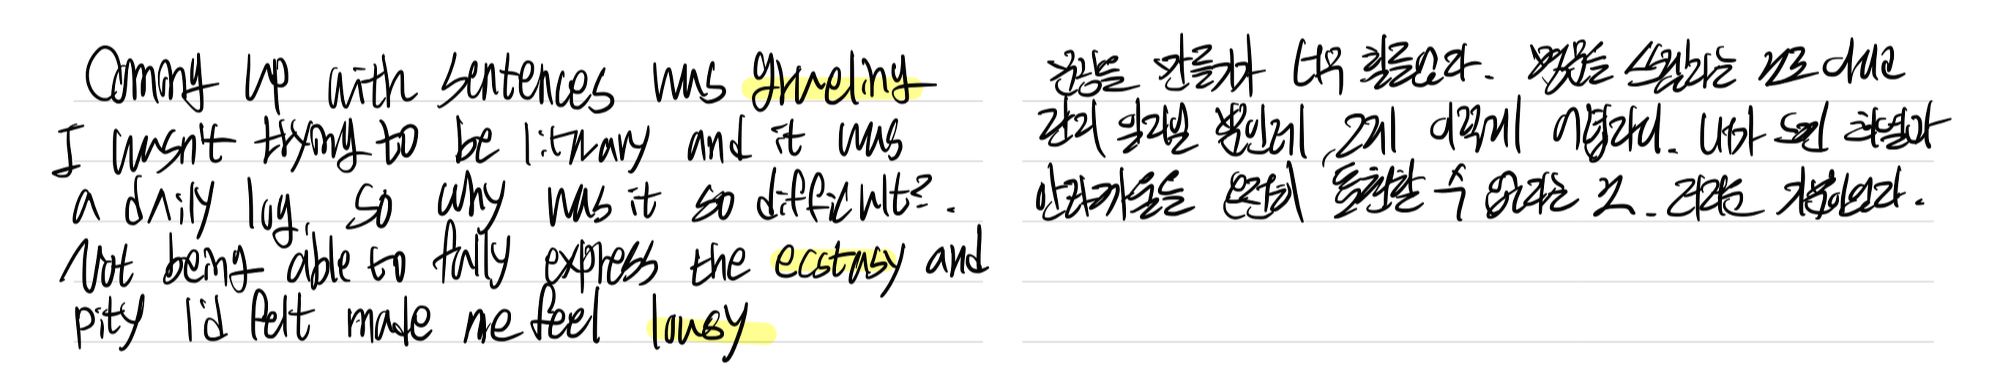 Coming up with sentences was grueling
I wasn't trying to be literary and it was
a daily log, so why was it so difficult?.
Not being able to fully express the ecstasy and
pity I'd felt made me feel lousy
문장을 만들기가 너무 힘들었다. 명문을 것도 아니고
단지 일기일 뿐인데, 그게 내가 느낀 희열과
안타까움을 온전히 표현할 수 없다는 것. 기분이었다.